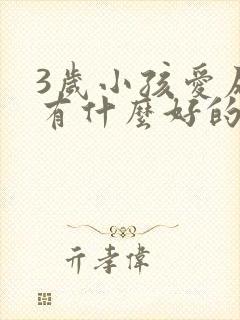 3歲小孩愛
有什麼好的
亓孝偉